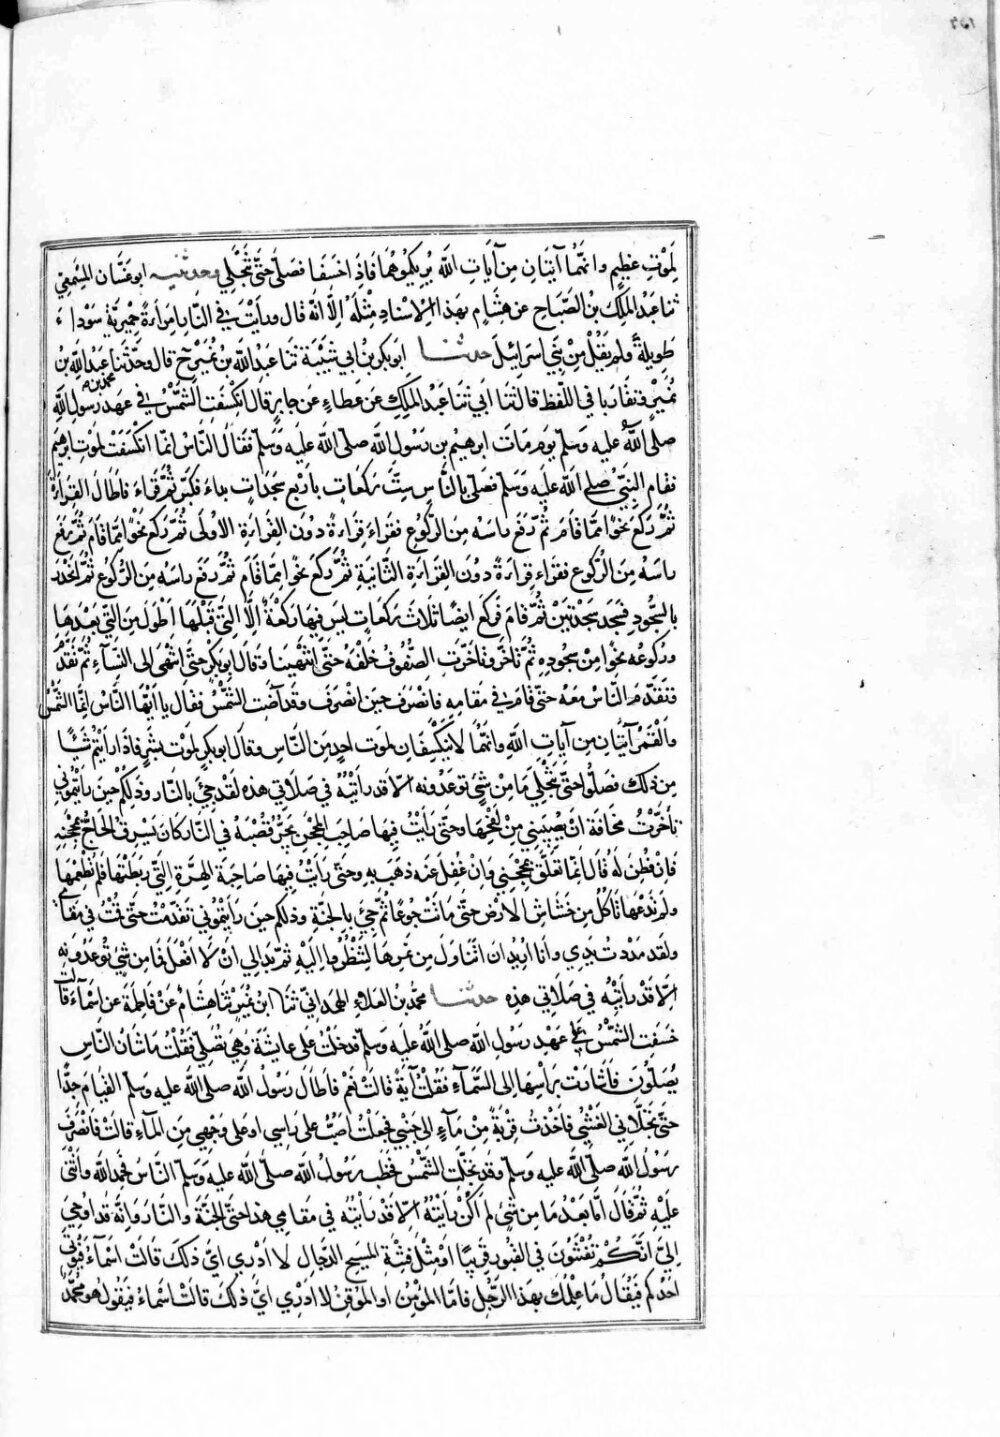 لموت عظيم وانهما آيتان من آيات الله يريكموهما فاذا خسفا فصلوا حتى تنجلي وحدثنيه ابو غسان المسمعي
ثنا عبد الملك بن الصباح عن هشام بهذا الاسناد مثله الا انه قال ورايت في النار امراة حميرية سوداء
طويلة ولم يقل من بني اسرائيل حدثنا ابو بكر بن ابي شيبة ثنا عبد الله بن نمير ح قال وحدثنا محمد بن عبد الله بن
نمير وتقاربا في اللفظ قال ثنا ابي ثنا عبد الملك عن عطاء عن جابر قال انكسفت الشمس في عهد رسول الله
صلى الله عليه وسلم يوم مات ابرهيم بن رسول الله صلى الله عليه وسلم فقال الناس انما انكسفت لموت ابرهيم
فقام النبي صلى الله عليه وسلم فصلى بالناس ست ركعات باربع سجدات بداء فكبر ثم قراء فاطال القراءة
ثم ركع نحوا مما قام ثم رفع راسه من الركوع فقراء قراءة دون القراءة الاولى ثم ركع نحوا مما قام ثم رفع
راسه من الركوع فقراء قراءة دون القراءة الثانية ثم ركع نحوا مما قام ثم رفع راسه من الركوع ثم انحدر
بالسجود فسجد سجدتين ثم قام فركع ايضا ثلاث ركعات ليس فيها ركعة الا التي قبلها اطول من التي بعدها
وركوعه نحوا من سجوده ثم تاخر وتاخرت الصفوف خلفه حتى انتهينا وقال ابو بكر حتى انتهى الى النساء ثم تقدم
فتقدم الناس معه حتى قام في مقامه فانصرف حين انصرف وقد آضت الشمس فقال يا ايها الناس انما الشمس
والقمر آيتان من آيات الله وانهما لا ينكسفان لموت احد من الناس وقال ابو بكر لموت بشر فاذا رايتم شيئا
من ذلك فصلوا حتى تنجلي ما من شئ توعدونه الا قد رايته في صلاتي هذه لقد جئ بالنار وذلكم حين رايتموني
تاخرت مخافة ان يصيبني من لفحها وحتى رايت فيها صاحب المحجن يجر قصبه في النار كان يسرق الحاج بمحجنه
فان فطن له قال انما تعلق بمحجني وان غفل عنه ذهب به وحتى رايت فيها صاحبة الهرة التي ربطتها فلم تطعمها
ولم تدعها تاكل من خشاش الارض حتى ماتت جوعا ثم جئ بالجنة وذلكم حين رايتموني تقدمت حتى قمت في مقامي
ولقد مددت يدي وانا اريد ان اتناول من ثمرها لتنظروا اليه ثم بدا لي ان لا افعل فما من شئ توعدونه
الا قد رايته في صلاتي هذه حدثنا محمد بن العلاء الهمداني ثنا ابن نمير ثنا هشام عن فاطمة عن اسماء قالت
خسفت الشمس على عهد رسول الله صلى الله عليه وسلم فدخلت على عايشة وهي تصلي فقلت ما شان الناس
يصلون فاشارت براسها الى السماء فقلت آية قالت نعم فاطال رسول الله صلى الله عليه وسلم القيام جدا
حتى تجلاني الغشي فاخذت قربة من ماء الى جنبي فجعلت اصب على راسي او على وجهي من الماء قالت فانصرف
رسول الله صلى الله عليه وسلم وقد تجلت الشمس فخطب رسول الله صلى الله عليه وسلم الناس فحمد الله واثنى
عليه ثم قال اما بعد ما من شئ لم اكن رايته الا قد رايته في مقامي هذا حتى الجنة والنار وانه قد اوحي
الي انكم تفتنون في القبور قريبا او مثل فتنة المسيح الدجال لا ادري اي ذلك قالت اسماء فيؤتى
احدكم فيقال ما علمك بهذا الرجل فاما المؤمن او الموقن لا ادري اي ذلك قالت اسماء فيقول هو محمد